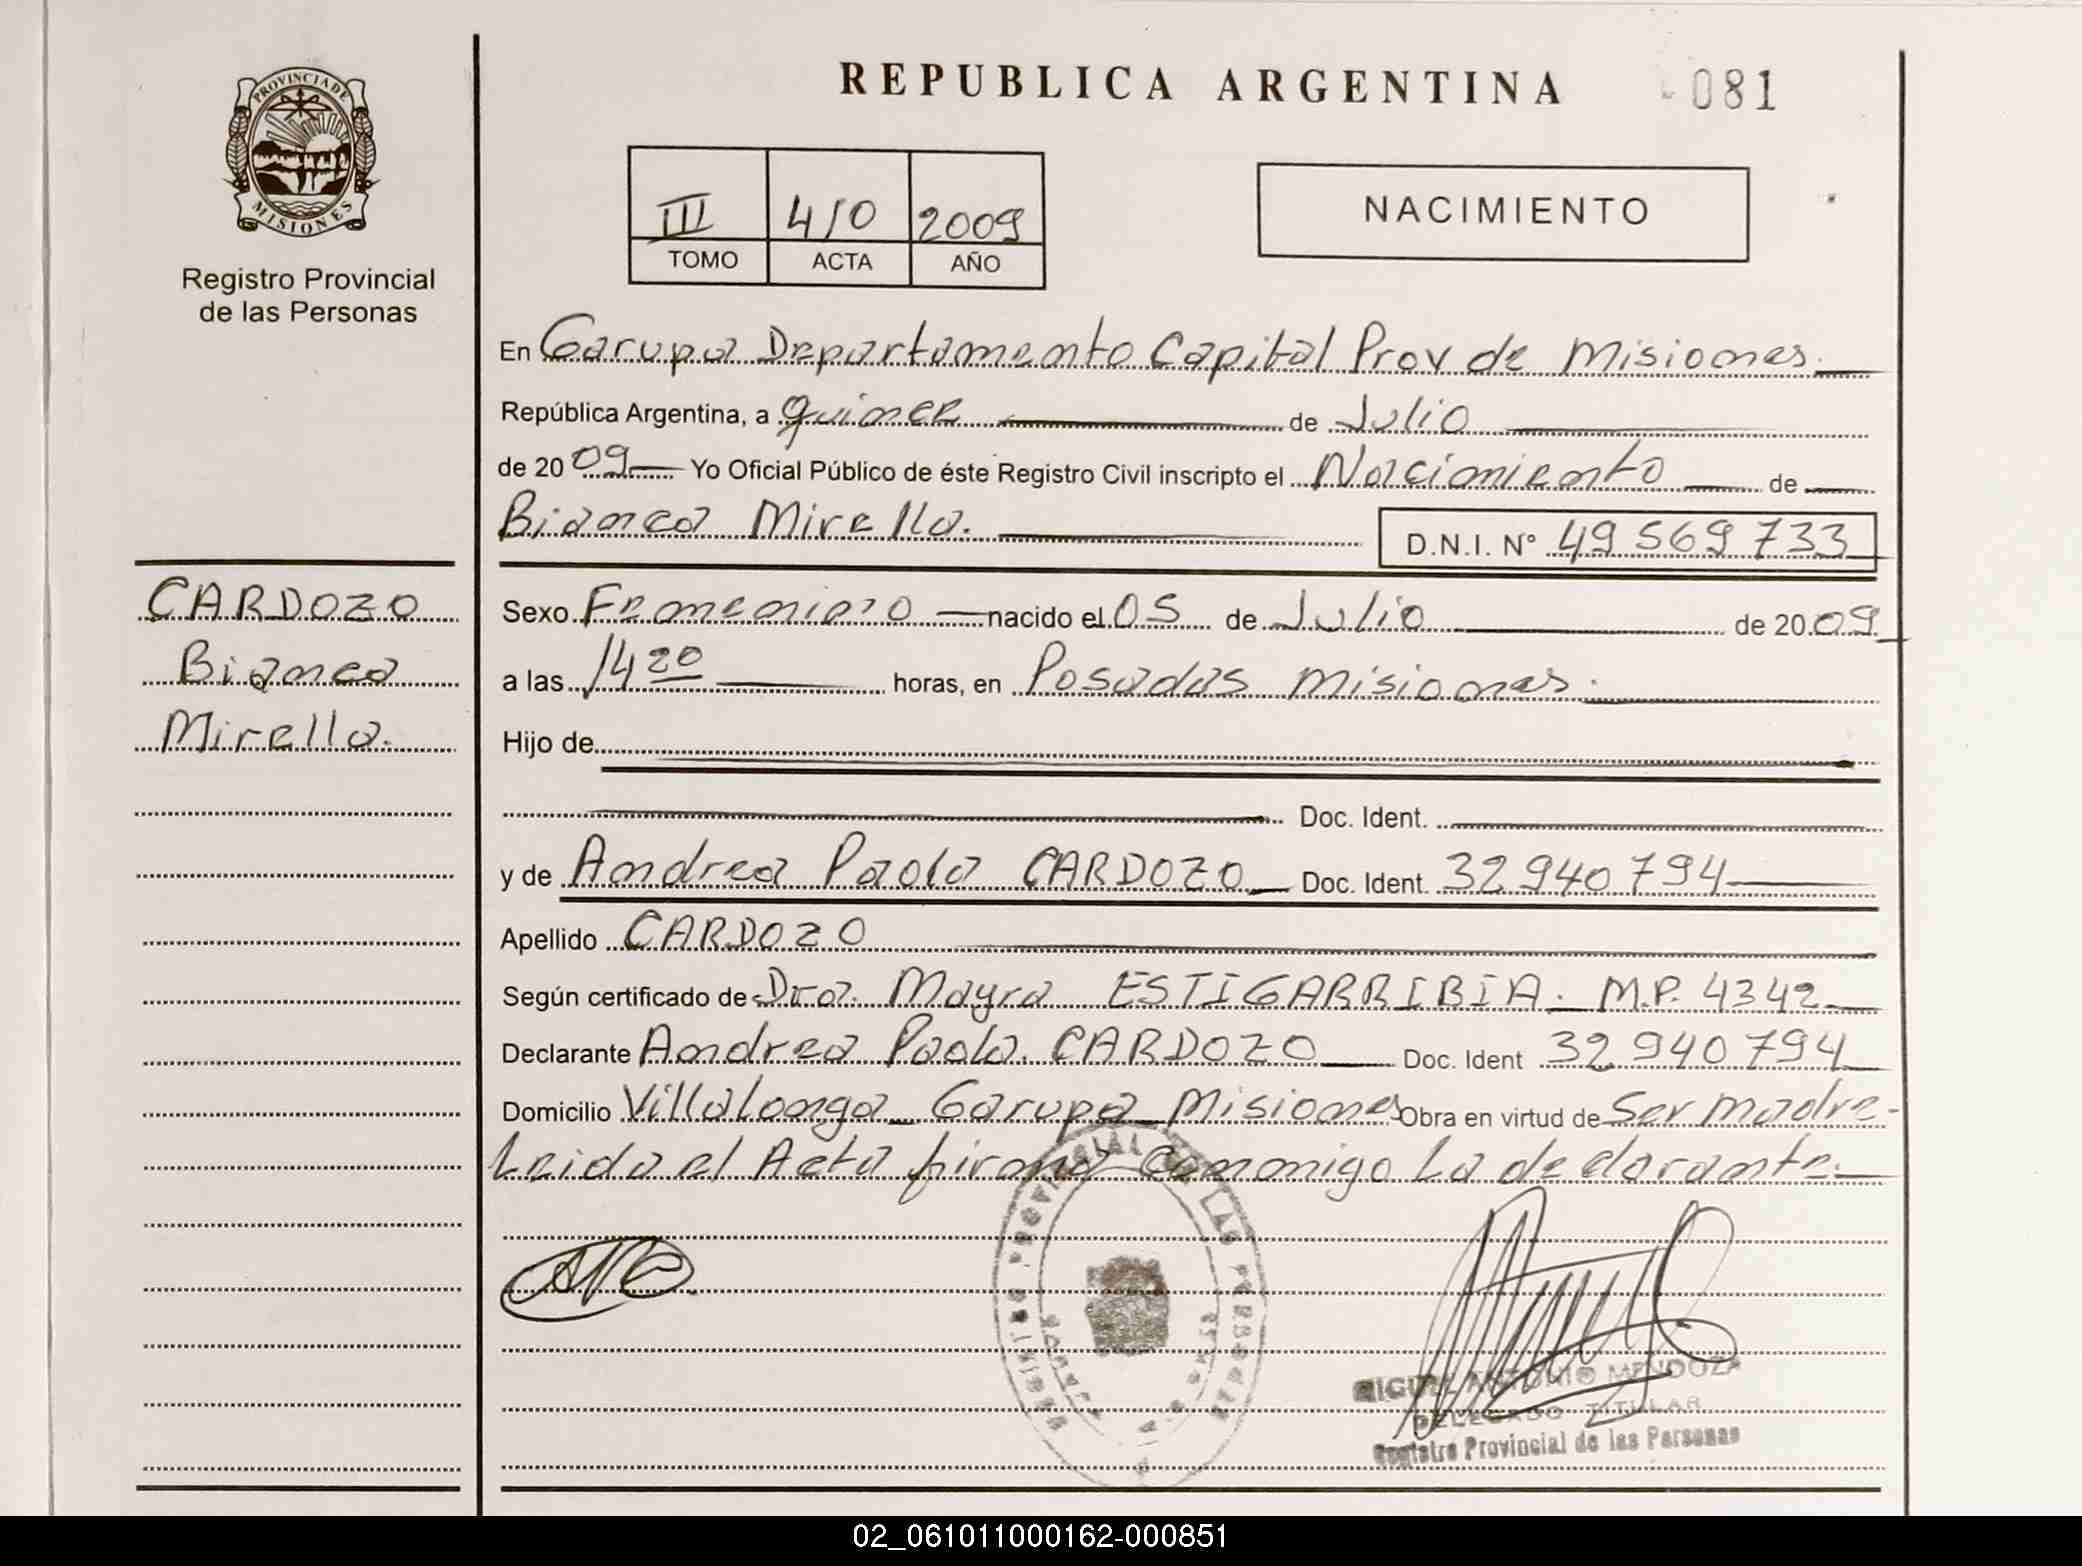 PROVINCIA DE
MISIONES
Registro Provincial
de las Personas
REPUBLICA ARGENTINA
081
III 410 2009
TOMO ACTA AÑO
NACIMIENTO
En Garupa Departamento Capital Prov de Misiones.
República Argentina, a quince de Julio
de 2009 Yo Oficial Público de éste Registro Civil inscripto el Nacimiento de
Bianca Mirella.
D.N.I. N° 49 569 733
CARDOZO
Bianca
Mirella.
Sexo Femenino nacido el 05 de Julio de 2009
a las 14 20 horas, en Posadas Misiones.
Hijo de
Doc. Ident.
y de Andrea Paola CARDOZO Doc. Ident. 32 940 794
Apellido CARDOZO
Según certificado de Dra. Mayra ESTIGARRIBIA. M.P. 4342
Declarante Andrea Paola CARDOZO Doc. Ident 32 940 794
Domicilio Villalonga Garupa Misiones Obra en virtud de Ser madre-
Leida el Acta firma conmigo La declarante.
REGISTRO PROVINCIAL DE LAS PERSONAS
MIGUEL ANTONIO MENDOZA
DELEGADO TITULAR
Registro Provincial de las Personas
02_061011000162-000851